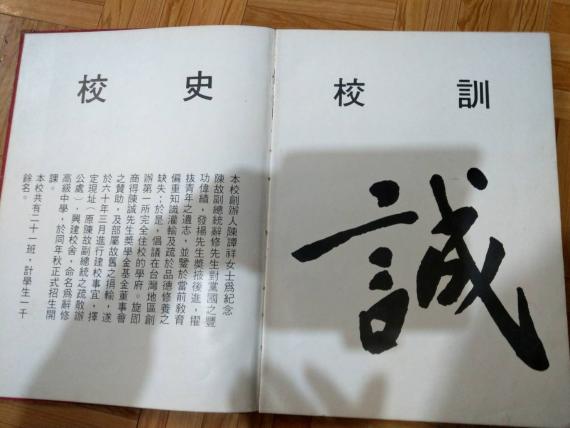 校史
本校創辦人陳譚祥女士爲紀念
陳故副總統辭修先生對黨國之豐
功偉績，發揚先生獎掖後進，擢
拔青年之遺志，並鑒於當前敎育
偏重知識灌輸及疏於品德修養之
缺失；於是，倡議在台灣地區創
辦第一所完全住校的學府。旋即
商得陳誠先生獎學金基金董事會
之贊助，及部屬故舊之捐輸，遂
於六十年三月進行建校事宜，擇
定現址（原陳故副總統之疏散辦
公處），興建校舍，命名爲辭修
高級中學，於同年秋正式招生開
課。
本校共有二十一班，計學生一千
餘名。
校訓
誠